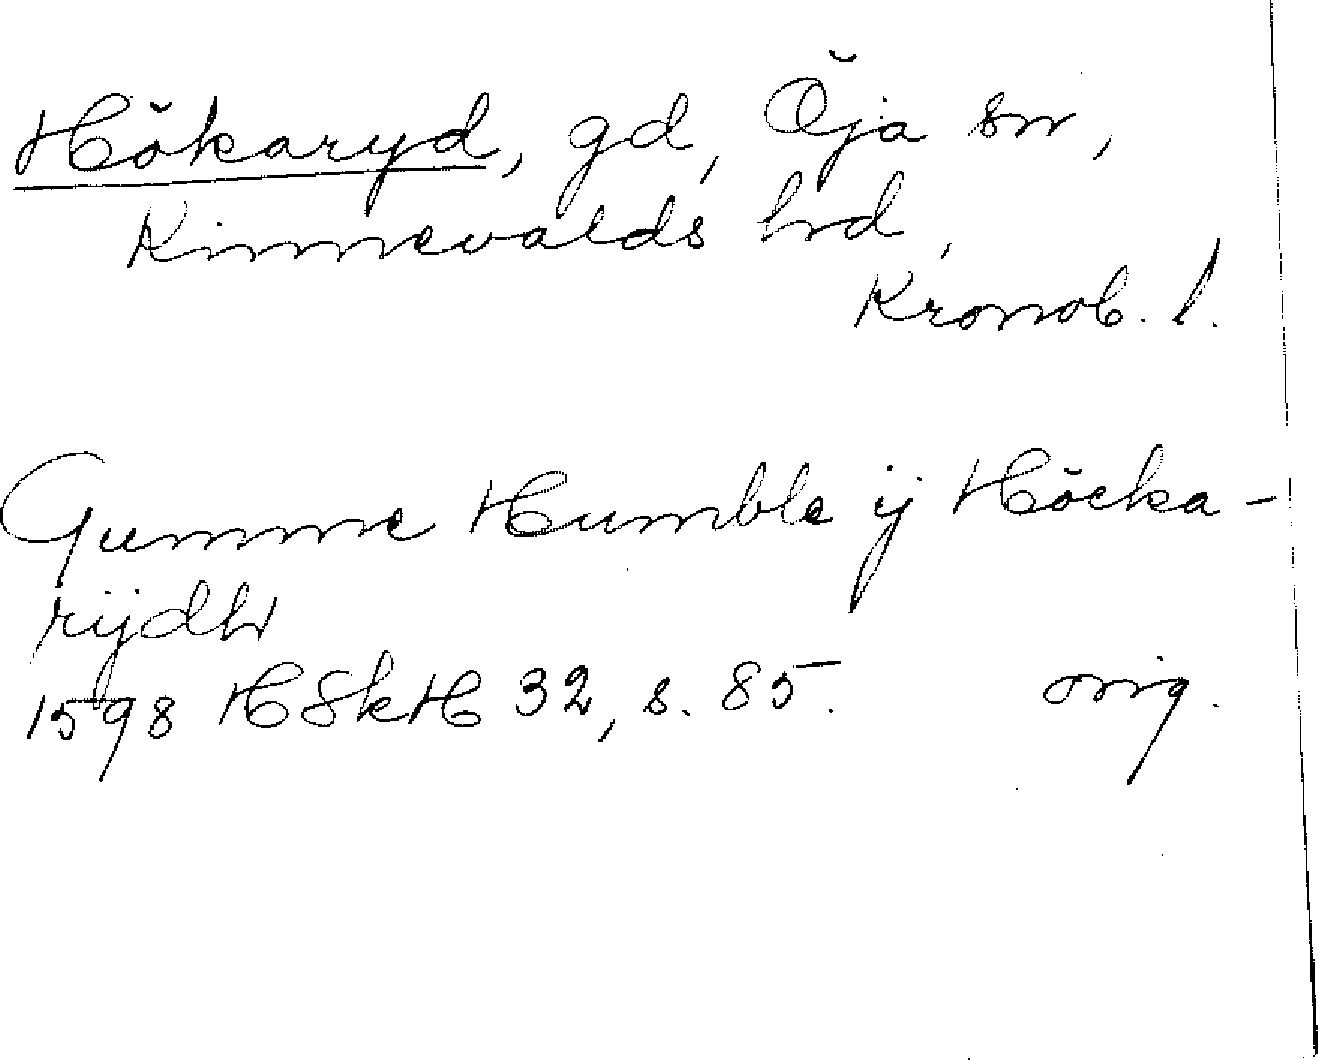 Hökaryd, gd, Öja sn,
Kinnevalds hd,
Kronob. l.
Gumme Humble ij Höcka-
rijdh
1598 HSkH 32, s. 85. orig.